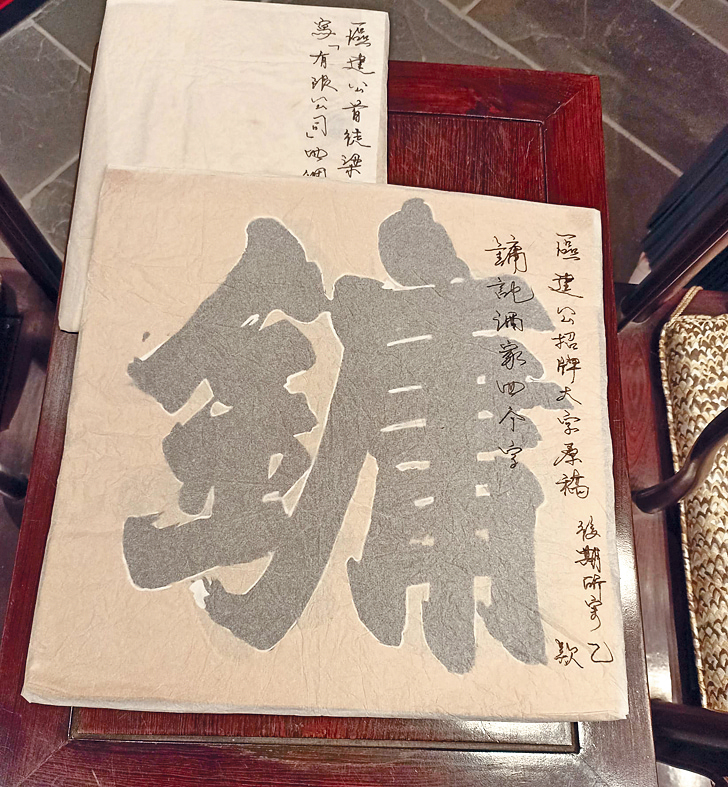 區建公首徒梁
寫「有限公司」四個
區建公招牌大字原稿
後期所寫乙
款
鏞記酒家四个字
鏞